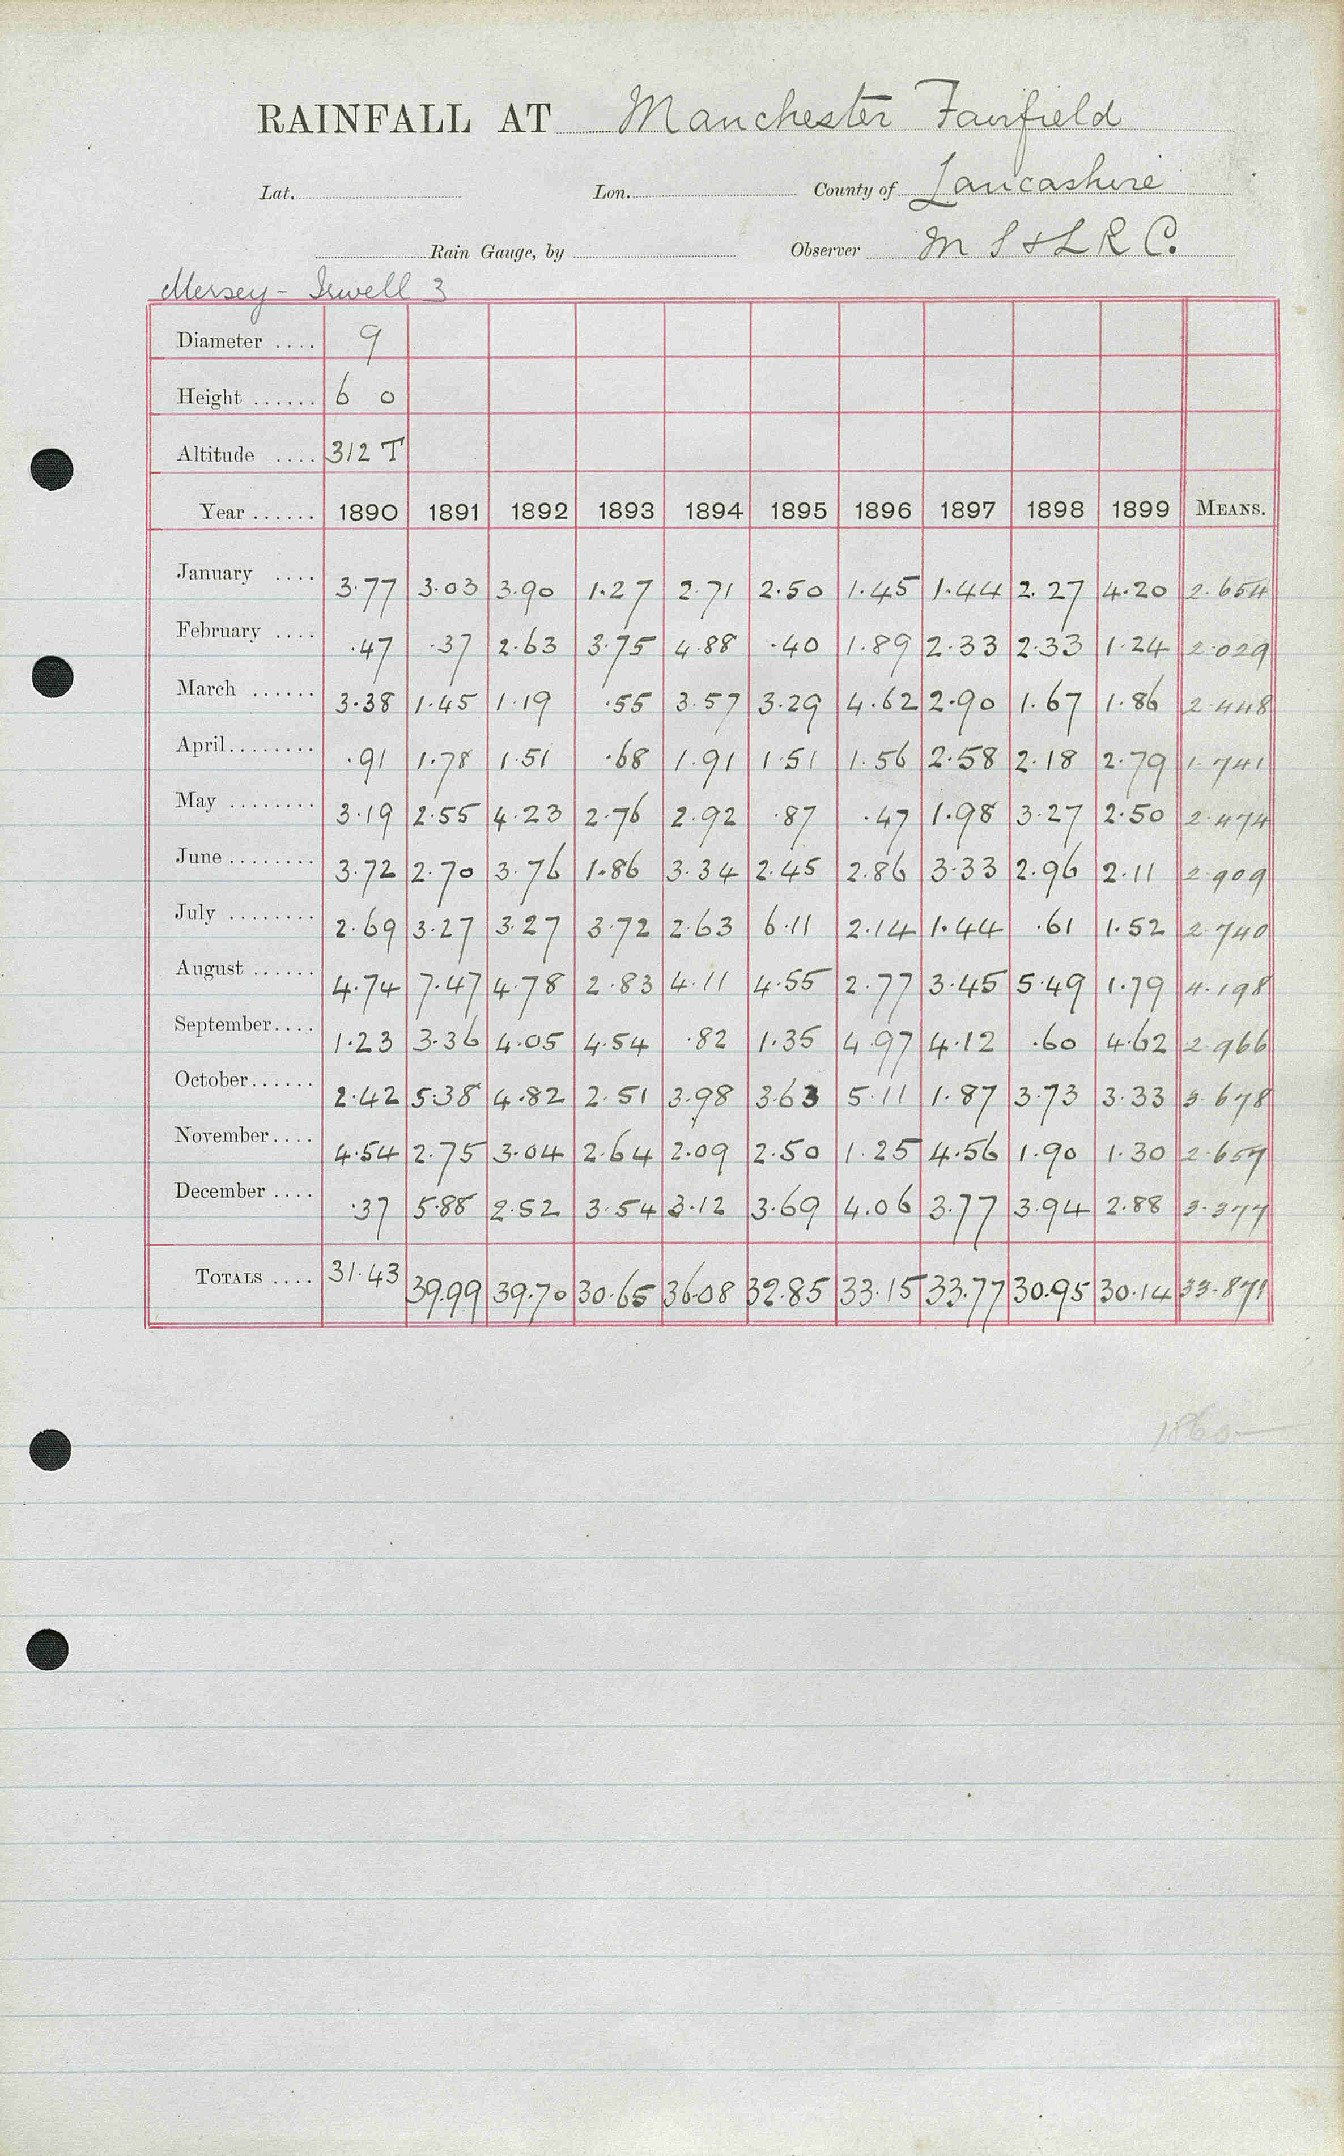 RAINFALL AT Manchester Fairfield
Lat. Lon. County of Lancashire
Rain Gauge, by Observer M S & L R C.
Mersey - Irwell 3
Diameter .... 9
Height ...... 6 0
Altitude .... 312 T
Year ...... 1890 1891 1892 1893 1894 1895 1896 1897 1898 1899 MEANS.
January .... 3.77 3.03 3.90 1.27 2.71 2.50 1.45 1.44 2.27 4.20 2.654
February .... .47 .37 2.63 3.75 4.88 .40 1.89 2.33 2.33 1.24 2.029
March ...... 3.38 1.45 1.19 .55 3.57 3.29 4.62 2.90 1.67 1.86 2.448
April........ .91 1.78 1.51 .68 1.91 1.51 1.56 2.58 2.18 2.79 1.741
May ........ 3.19 2.55 4.23 2.76 2.92 .87 .47 1.98 3.27 2.50 2.474
June ........ 3.72 2.70 3.76 1.86 3.34 2.45 2.86 3.33 2.96 2.11 2.909
July ........ 2.69 3.27 3.27 3.72 2.63 6.11 2.14 1.44 .61 1.52 2.740
August ...... 4.74 7.47 4.78 2.83 4.11 4.55 2.77 3.45 5.49 1.79 4.198
September.... 1.23 3.36 4.05 4.54 .82 1.35 4.97 4.12 .60 4.62 2.966
October...... 2.42 5.38 4.82 2.51 3.98 3.63 5.11 1.87 3.73 3.33 3.678
November.... 4.54 2.75 3.04 2.64 2.09 2.50 1.25 4.56 1.90 1.30 2.657
December .... .37 5.88 2.52 3.54 3.12 3.69 4.06 3.77 3.94 2.88 3.377
TOTALS .... 31.43 39.99 39.70 30.65 36.08 32.85 33.15 33.77 30.95 30.14 33.871
1860-